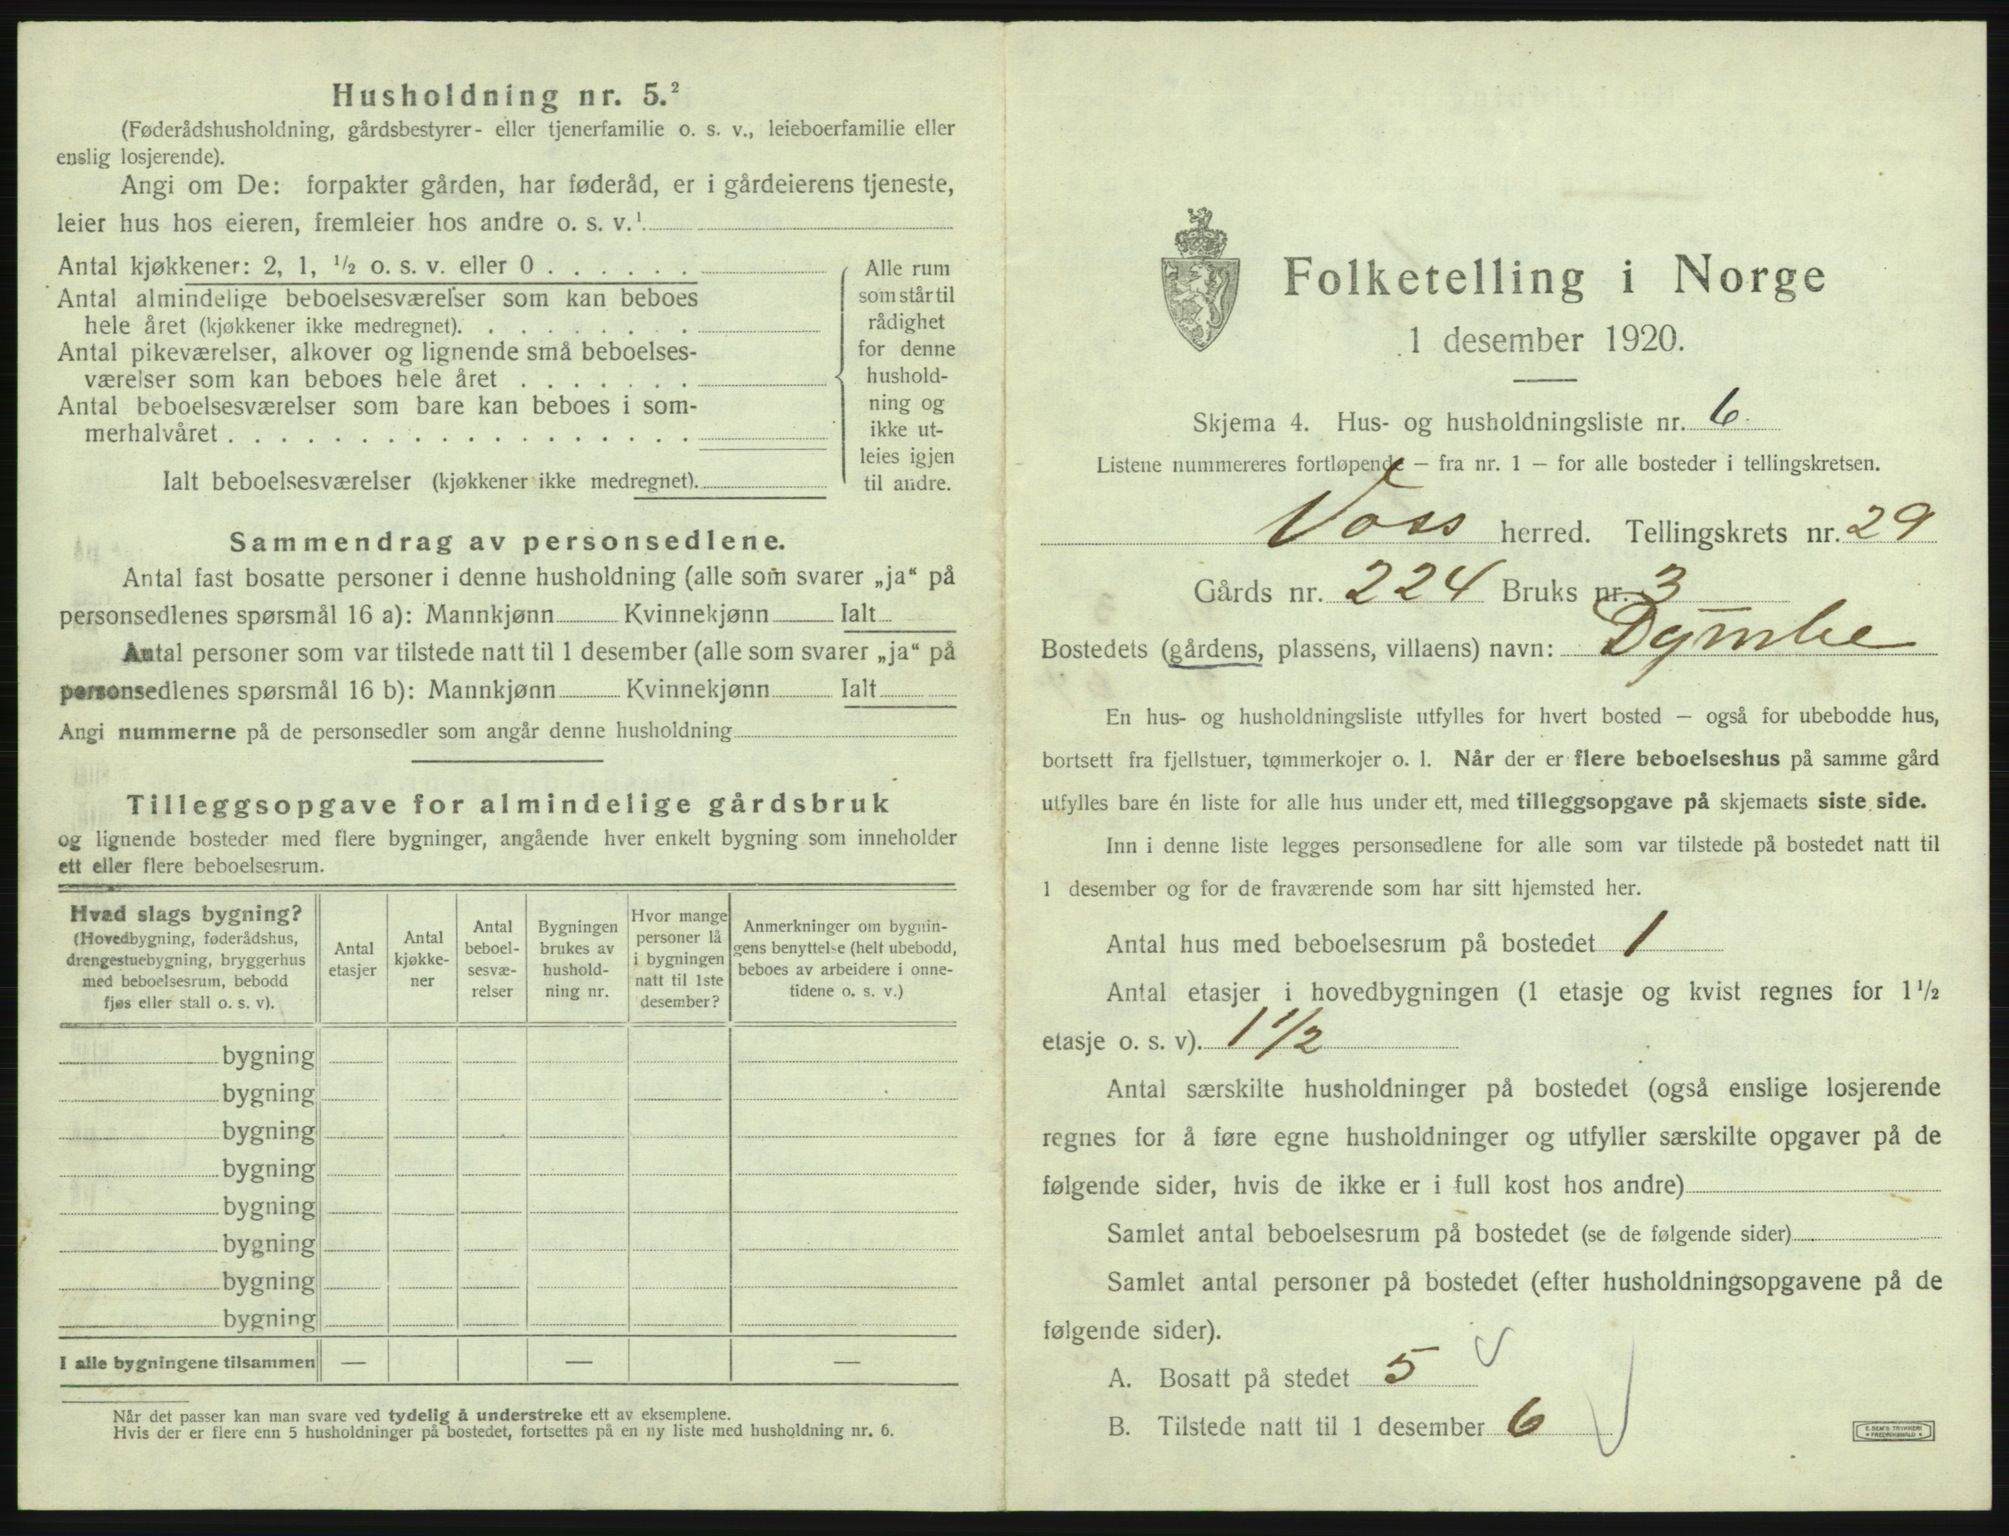 Husholdning nr. 5.²
(Føderådshusholdning, gårdsbestyrer- eller tjenerfamilie o. s. v., leieboerfamilie eller
enslig losjerende).
Angi om De: forpakter gården, har føderåd, er i gårdeierens tjeneste,
leier hus hos eieren, fremleier hos andre o. s. v.¹
Antal kjøkkener: 2, 1, ½ o. s. v. eller 0 . . . . . .
Antal almindelige beboelsesværelser som kan beboes
hele året (kjøkkener ikke medregnet). . . . . . . . .
Antal pikeværelser, alkover og lignende små beboelses-
værelser som kan beboes hele året . . . . . . .
Antal beboelsesværelser som bare kan beboes i som-
merhalvåret . . . . . . . . . . . . . . . . . .
Ialt beboelsesværelser (kjøkkener ikke medregnet).
Alle rum
som står til
rådighet
for denne
hushold-
ning og
ikke ut-
leies igjen
til andre.
Sammendrag av personsedlene.
Antal fast bosatte personer i denne husholdning (alle som svarer „ja“ på
personsedlenes spørsmål 16 a): Mannkjønn Kvinnekjønn Ialt
Antal personer som var tilstede natt til 1 desember (alle som svarer „ja“ på
personsedlenes spørsmål 16 b): Mannkjønn Kvinnekjønn Ialt
Angi nummerne på de personsedler som angår denne husholdning
Tilleggsopgave for almindelige gårdsbruk
og lignende bosteder med flere bygninger, angående hver enkelt bygning som inneholder
ett eller flere beboelsesrum.
Hvad slags bygning?
(Hovedbygning, føderådshus,
drengestuebygning, bryggerhus
med beboelsesrum, bebodd
fjøs eller stall o. s. v).
Antal
etasjer
Antal
kjøkke-
ner
Antal
beboel-
sesvæ-
relser
Bygningen
brukes av
hushold-
ning nr.
Hvor mange
personer lå
i bygningen
natt til 1ste
desember?
Anmerkninger om bygnin-
gens benyttelse (helt ubebodd,
beboes av arbeidere i onne-
tidene o. s. v.)
bygning
bygning
bygning
bygning
bygning
bygning
bygning
bygning
I alle bygningene tilsammen — — —
Når det passer kan man svare ved tydelig å understreke ett av eksemplene.
Hvis der er flere enn 5 husholdninger på bostedet, fortsettes på en ny liste med husholdning nr. 6.
Folketelling i Norge
1 desember 1920.
Skjema 4. Hus- og husholdningsliste nr. 6
Listene nummereres fortløpende — fra nr. 1 — for alle bosteder i tellingskretsen.
Voss herred. Tellingskrets nr. 29
Gårds nr. 224 Bruks nr. 3
Bostedets (gårdens, plassens, villaens) navn: Dymbe
En hus- og husholdningsliste utfylles for hvert bosted — også for ubebodde hus,
bortsett fra fjellstuer, tømmerkojer o. l. Når der er flere beboelseshus på samme gård
utfylles bare én liste for alle hus under ett, med tilleggsopgave på skjemaets siste side.
Inn i denne liste legges personsedlene for alle som var tilstede på bostedet natt til
1 desember og for de fraværende som har sitt hjemsted her.
Antal hus med beboelsesrum på bostedet 1
Antal etasjer i hovedbygningen (1 etasje og kvist regnes for 1½
etasje o. s. v). 1 1/2
Antal særskilte husholdninger på bostedet (også enslige losjerende
regnes for å føre egne husholdninger og utfyller særskilte opgaver på de
følgende sider, hvis de ikke er i full kost hos andre)
Samlet antal beboelsesrum på bostedet (se de følgende sider)
Samlet antal personer på bostedet (efter husholdningsopgavene på de
følgende sider).
A. Bosatt på stedet 5
B. Tilstede natt til 1 desember 6